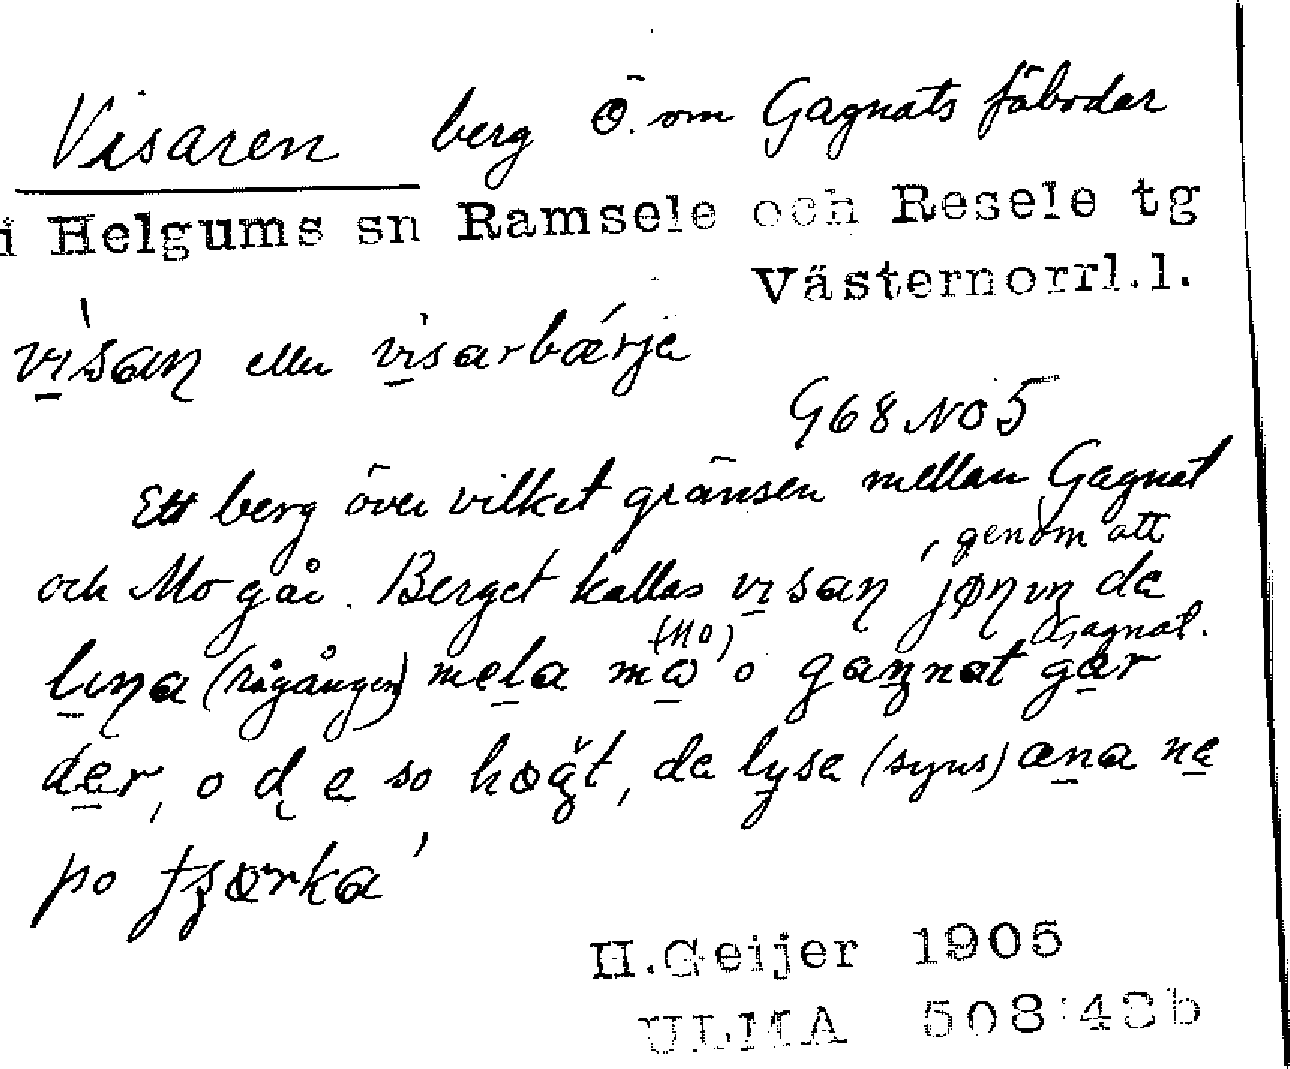 Visaren berg Ö. om Gagnats fäbodar
i Helgums sn Ramsele och Resele tg
Västernorrl.l.
visaɳ eller visarbærje
G68 NO 5
Ett berg över vilket gränsen mellan Gagnat
och Mo går. Berget kallas visaɳ, genom att
liɳa (rågången) mela mɷ (Mo) o gaŋnat (Gagnat.) gær
dær, o de so høgt, da lyse (syns) æna ne
po
H.Geijer 1905
ULMA 508:48b